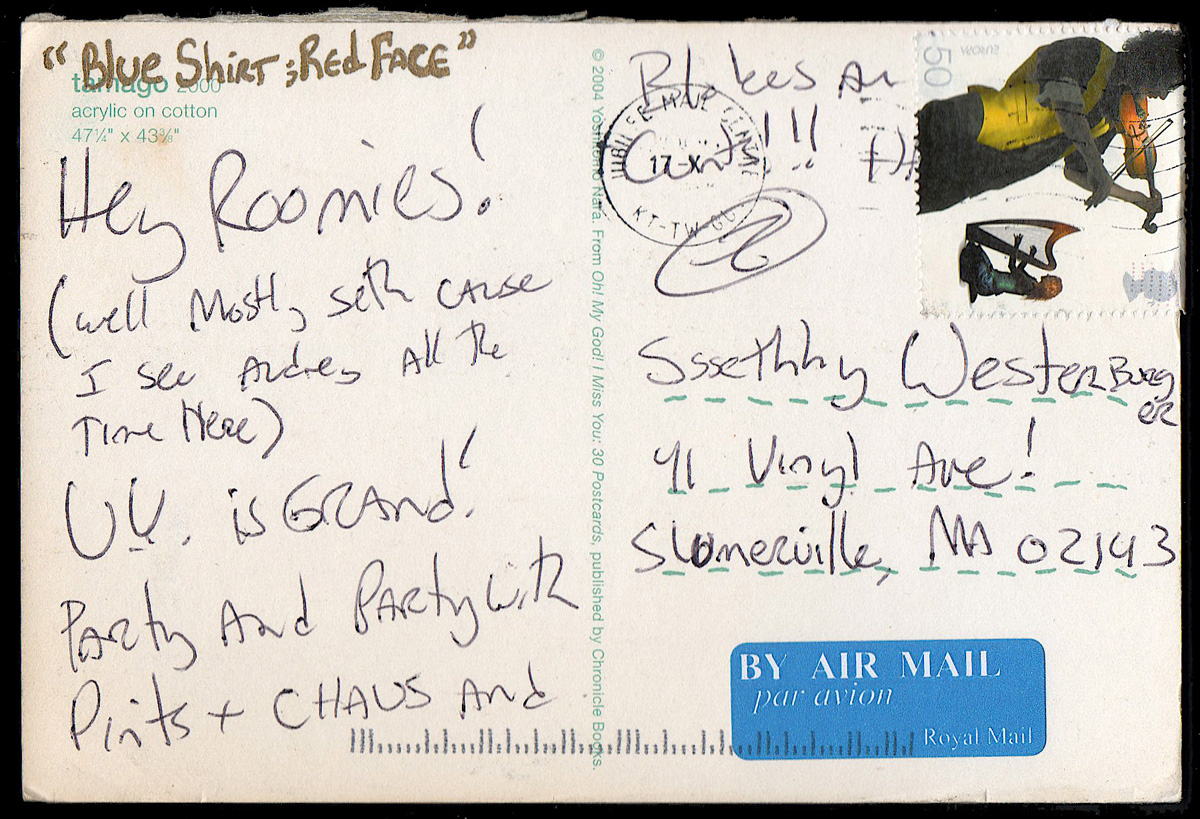 "Blue Shirt; Red Face"
tamago 2000
acrylic on cotton
47¼" x 43⅜"
Hey Roomies!
(well Mostly Seth cause
I see Audrey All the
Time Here)
U.K. is GRAnd!
PARty And PARty with
Pints + CHAVS And
© 2004 Yoshitomo Nara. From Oh! My God! I Miss You: 30 Postcards, published by Chronicle Books.
Blokes An
!!!
17-X
50
EUROPA
Sssethhy WesterBurg
er
41 Vinyl Ave!
Slomerville, MA 02143
BY AIR MAIL
par avion
Royal Mail